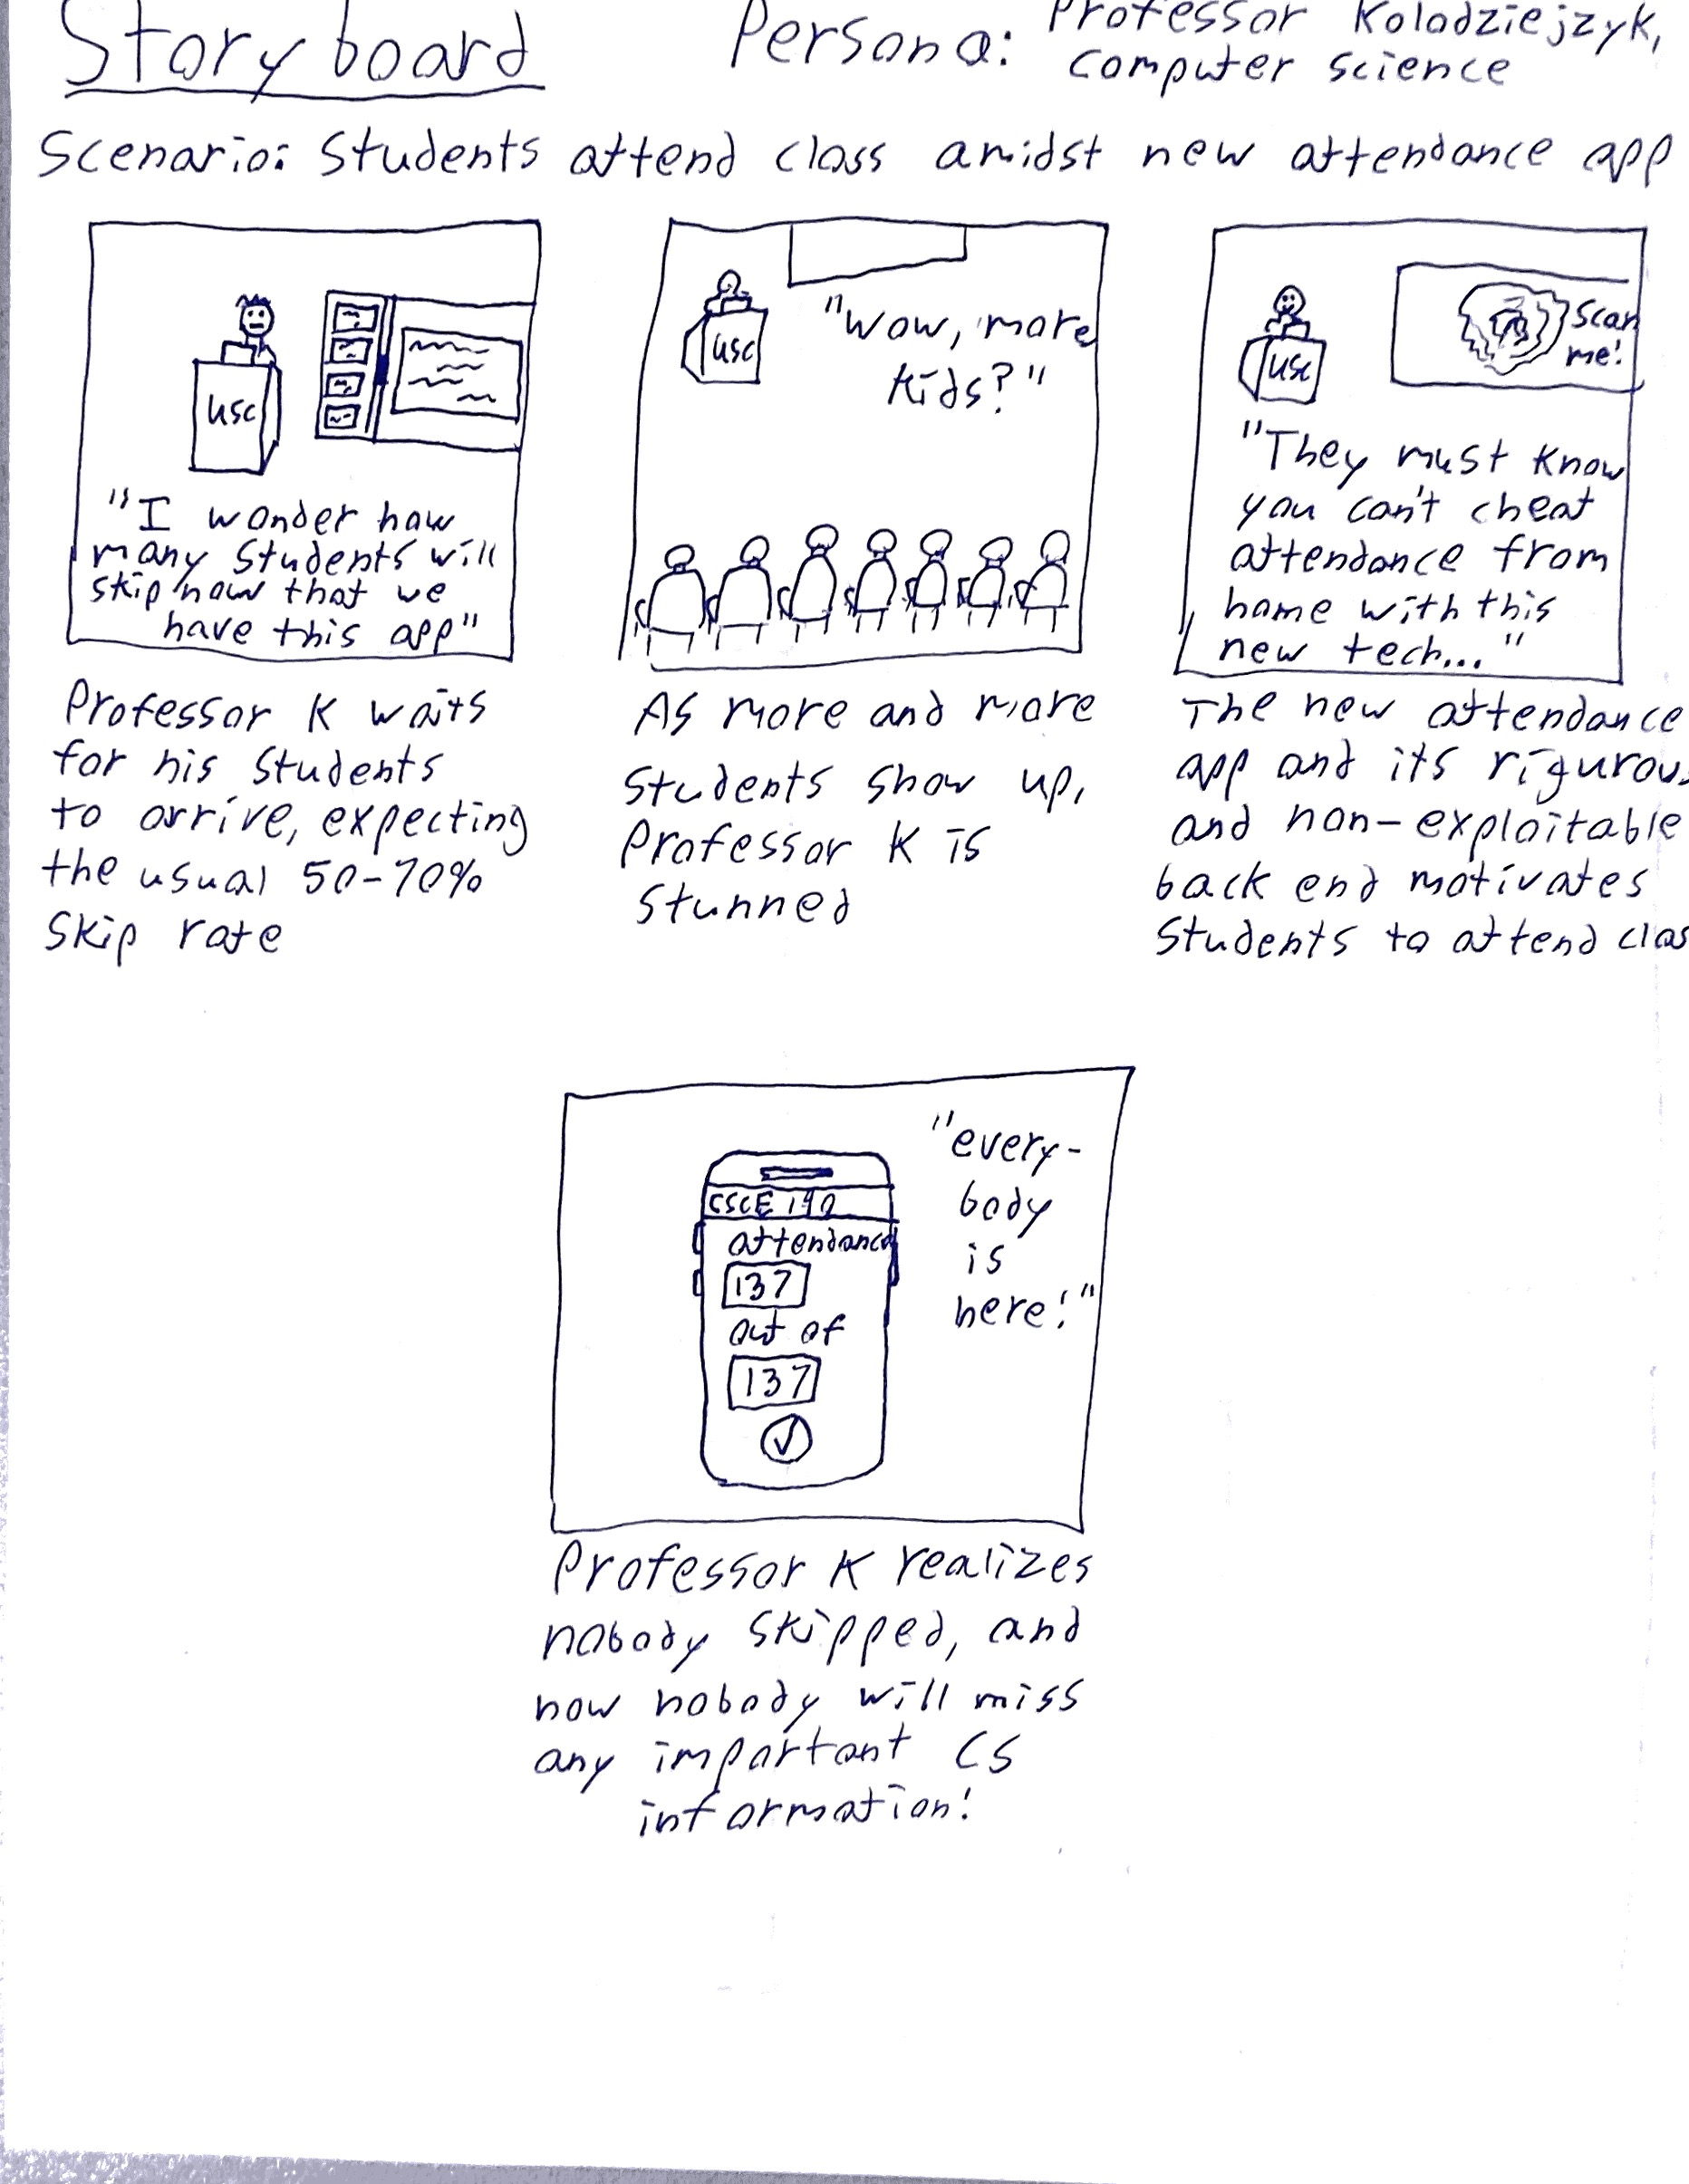 Story board
Persona: Professor Kolodziejzyk,
computer science
Scenario: Students attend class amidst new attendance app
USC
"I wonder how
many students will
skip now that we
have this app"
Professor K waits
for his students
to arrive, expecting
the usual 50-70%
skip rate
USC
"Wow, more
kids?"
As more and more
students show up,
Professor K is
stunned
USC
Scan
me!
"They must know
you can't cheat
attendance from
home with this
new tech..."
The new attendance
app and its rigurous
and non-exploitable
back end motivates
students to attend clas
"every-
body
is
here!"
CSCE 190
attendance
137
out of
137
Professor K realizes
nobody skipped, and
now nobody will miss
any important CS
information!